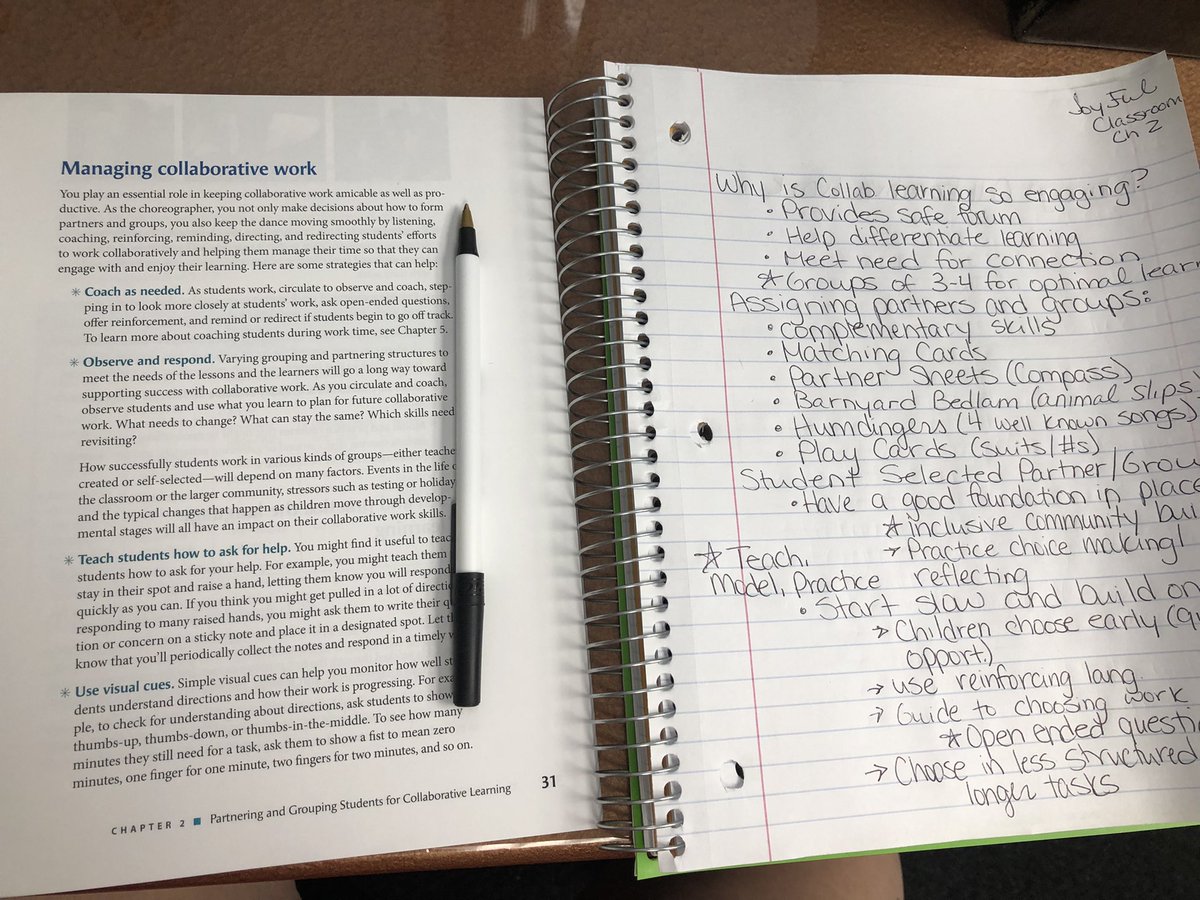 Managing collaborative work
You play an essential role in keeping collaborative work amicable as well as pro-
ductive. As the choreographer, you not only make decisions about how to form
partners and groups, you also keep the dance moving smoothly by listening,
coaching, reinforcing, reminding, directing, and redirecting students' efforts
to work collaboratively and helping them manage their time so that they can
engage with and enjoy their learning. Here are some strategies that can help:
✳ Coach as needed. As students work, circulate to observe and coach, step-
ping in to look more closely at students' work, ask open-ended questions,
offer reinforcement, and remind or redirect if students begin to go off track.
To learn more about coaching students during work time, see Chapter 5.
✳ Observe and respond. Varying grouping and partnering structures to
meet the needs of the lessons and the learners will go a long way toward
supporting success with collaborative work. As you circulate and coach,
observe students and use what you learn to plan for future collaborative
work. What needs to change? What can stay the same? Which skills need
revisiting?
How successfully students work in various kinds of groups—either teache
created or self-selected—will depend on many factors. Events in the life
the classroom or the larger community, stressors such as testing or holiday
and the typical changes that happen as children move through develop-
mental stages will all have an impact on their collaborative work skills.
✳ Teach students how to ask for help. You might find it useful to teac
students how to ask for your help. For example, you might teach them
stay in their spot and raise a hand, letting them know you will respond
quickly as you can. If you think you might get pulled in a lot of directi
responding to many raised hands, you might ask them to write their q
tion or concern on a sticky note and place it in a designated spot. Let t
know that you'll periodically collect the notes and respond in a timely
✳ Use visual cues. Simple visual cues can help you monitor how well st
dents understand directions and how their work is progressing. For exa
ple, to check for understanding about directions, ask students to show
thumbs-up, thumbs-down, or thumbs-in-the-middle. To see how many
minutes they still need for a task, ask them to show a fist to mean zero
minutes, one finger for one minute, two fingers for two minutes, and so on.
CHAPTER 2 ■ Partnering and Grouping Students for Collaborative Learning 31
Joyful
Classroom
Ch 2
Why is Collab learning so engaging?
• Provides safe forum
• Help differentiate learning
• Meet need for connection
☆ Groups of 3-4 for optimal lear
Assigning partners and groups:
• complementary skills
• Matching Cards
• Partner Sheets (Compass)
• Barnyard Bedlam (animal slips)
• Humdingers (4 well known songs)
• Play Cards (suits/#s)
Student Selected Partner/Grou
• Have a good foundation in place
☆ inclusive community bui
☆ Teach, → Practice choice making!
Model, Practice reflecting
• Start slow and build on
→ Children choose early (qu
opport.)
→ use reinforcing lang.
→ Guide to choosing work
☆ Open ended questi
→ Choose in less structured
longer tasks